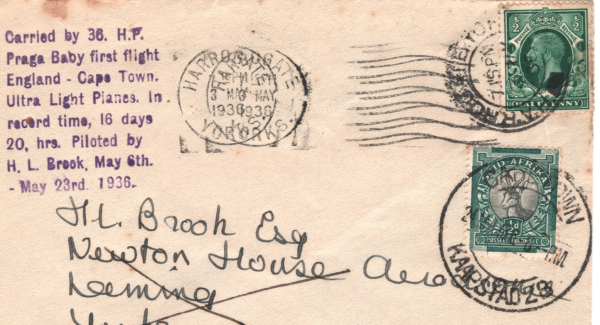 Carried by 36. H.P.
Praga Baby first flight
England - Cape Town.
Ultra Light Planes. In
record time, 16 days
20, hrs. Piloted by
H. L. Brook, May 6th.
- May 23rd. 1936.
HARROGATE
MAY
1936
YORKS
7.15 PM
½ ½
HALFPENNY
SUID-AFRIKA
POSSEEL INKOMSTE
TOWN
P.M.
KAAPSTAD
H.L. Brook Esq
Newton House
Leeming
Yorks